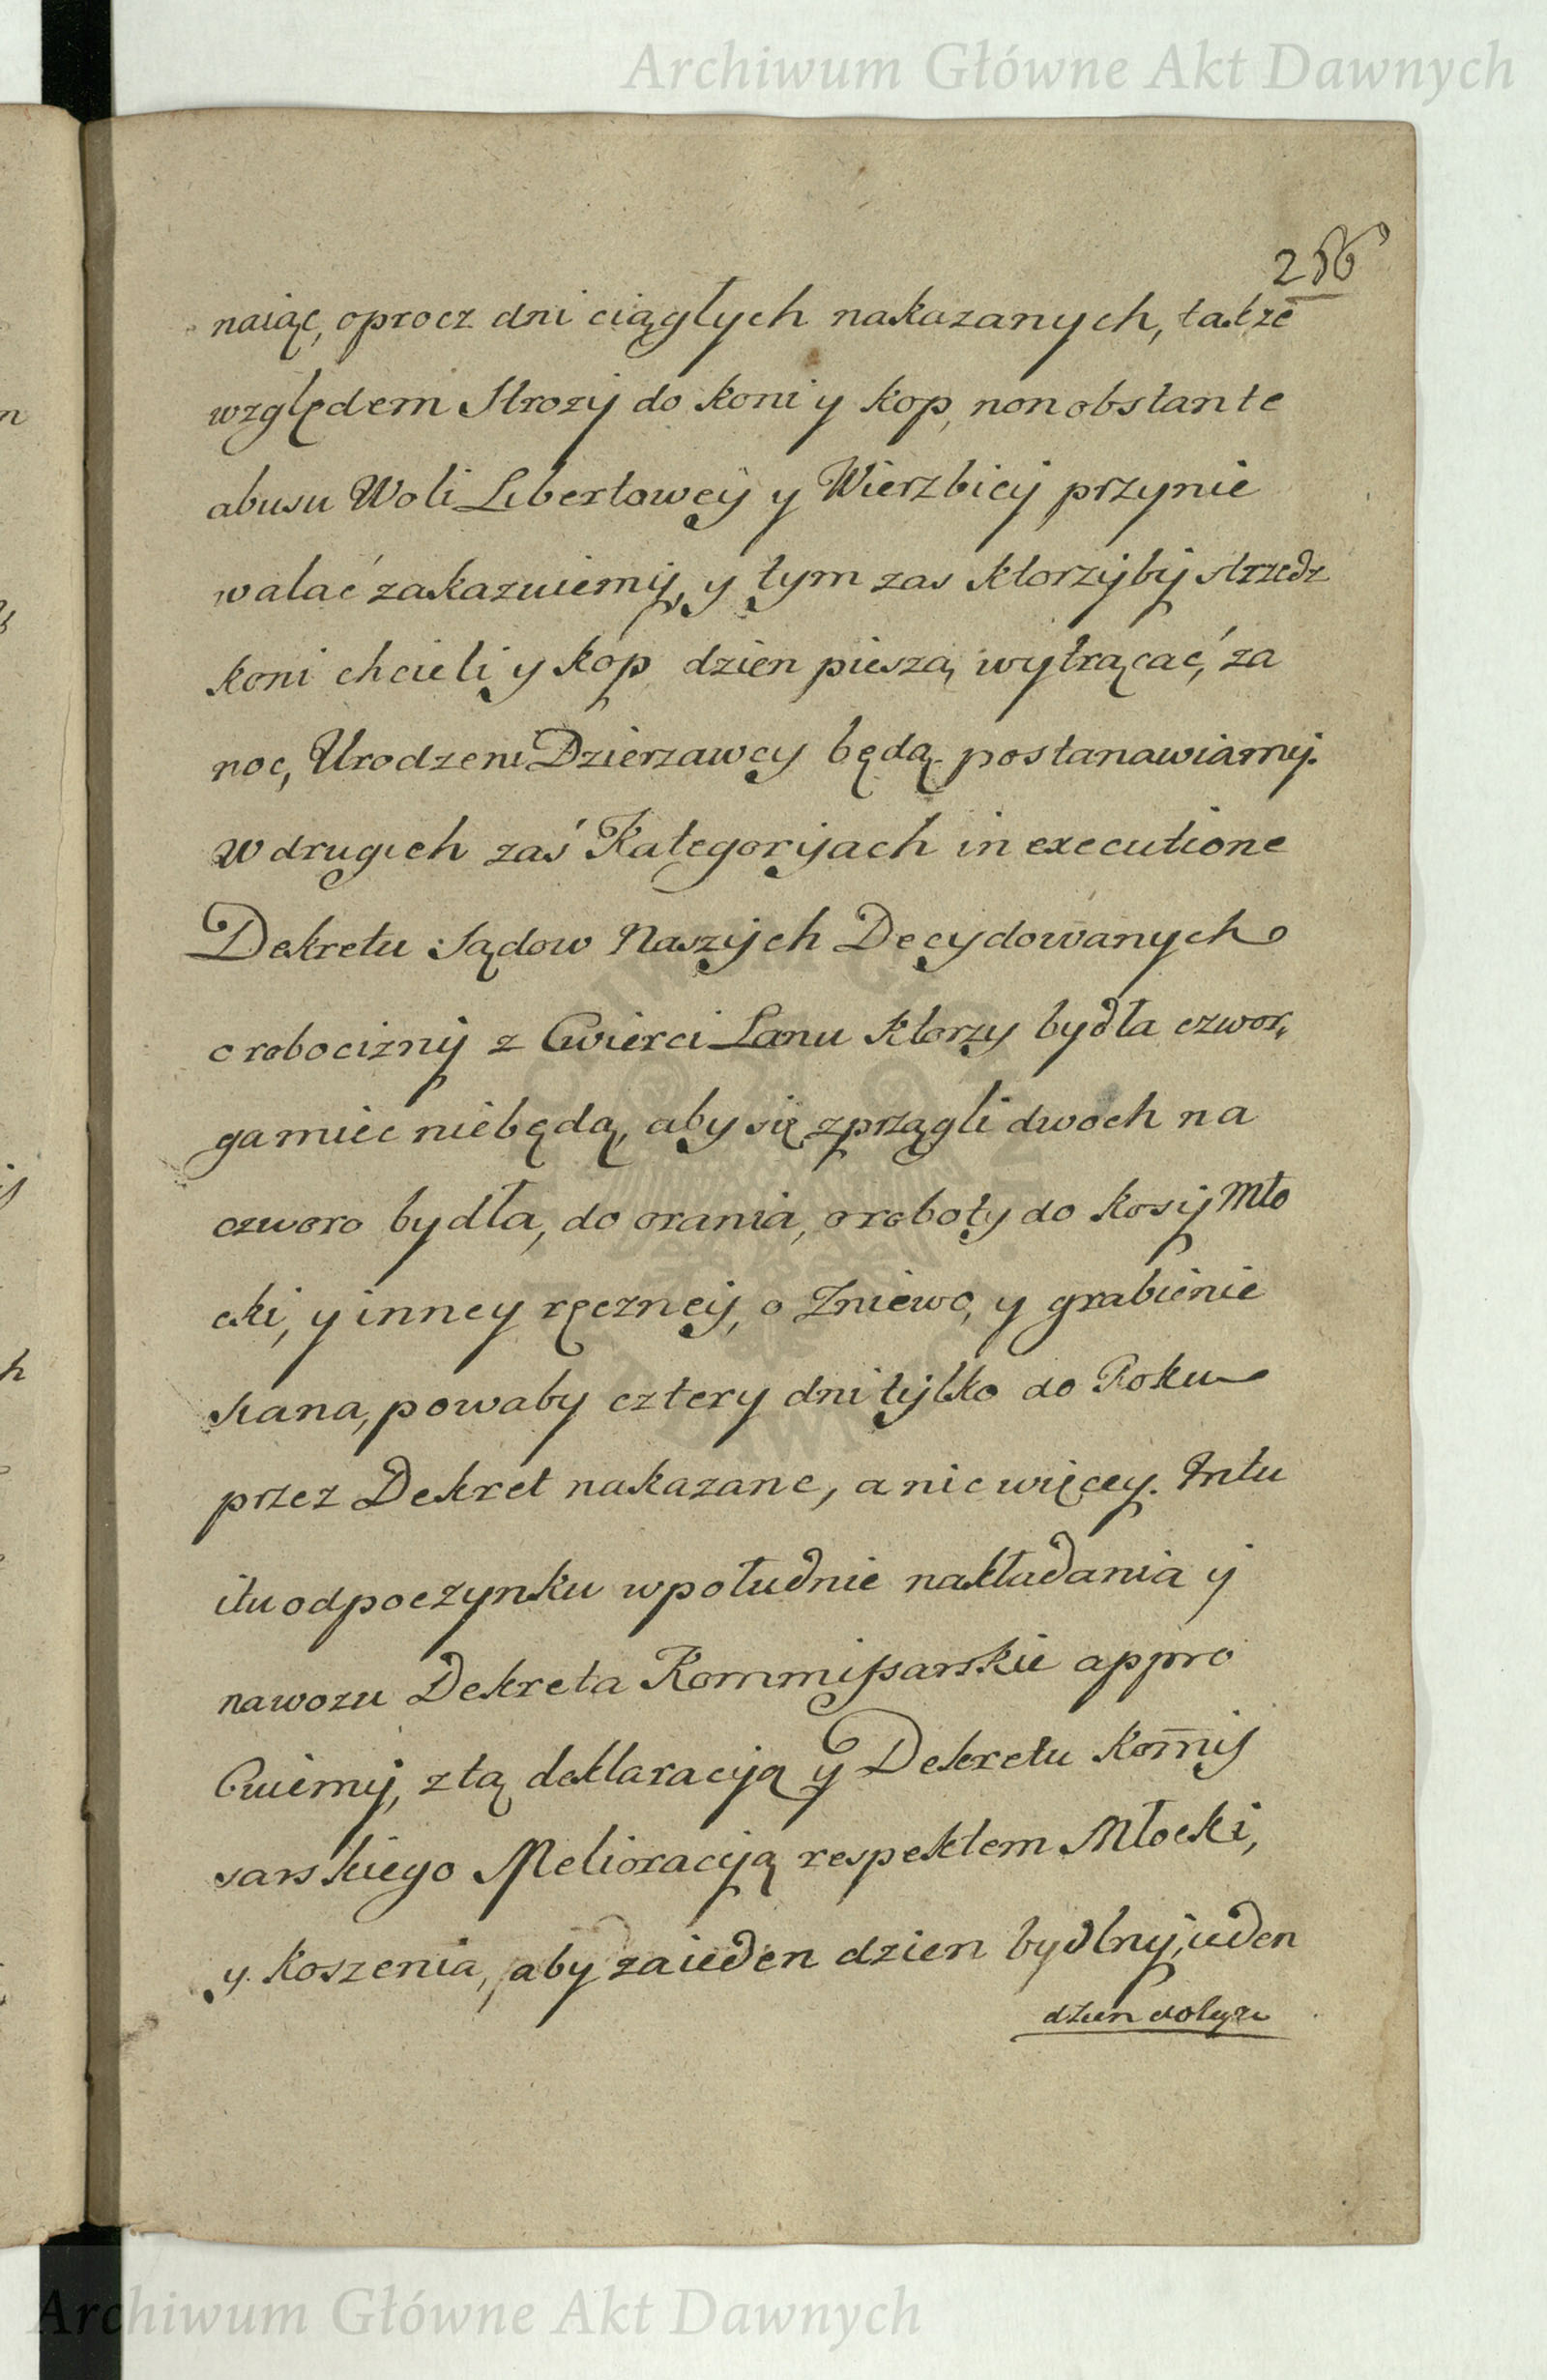 Archiwum Główne Akt Dawnych
256
naiąc, oprocz dni ciągłych nakazanych, takze
względem Strozy do koni y kop, non obstante
abusu Woli Libertowey y Wierzbicy przynie
walać zakazuiemy, y tym zas ktorzyby strzedz
koni chcieli y kop dzien pieszą wytrącać, za
noc, Urodzeni Dzierzawcy będą postanawiamy.
W drugich zaś Kategoryjach in executione
Dekretu Sądow Naszych Decydowanych
o robocizny z Cwierci Lanu ktorzy bydła czwor,
ga miec niebędą, aby się zprzągli dwoch na
czworo bydła, do orania, o roboty do kosy Mło
cki, y inney ręczney, o Zniewo, y grabienie
siana, powaby cztery dni tylko do Roku
przez Dekret nakazane, a nic więcey. Intu
itu odpoczynku w południe nakładania y
nawozu Dekreta Kommissarskie appro
buiemy, z tą deklaracyją y Dekretu Kom̄is
sarskiego Melioracyją respektem Młocki,
y koszenia, aby za ieden dzien bydlny, ieden
dzien
Archiwum Główne Akt Dawnych